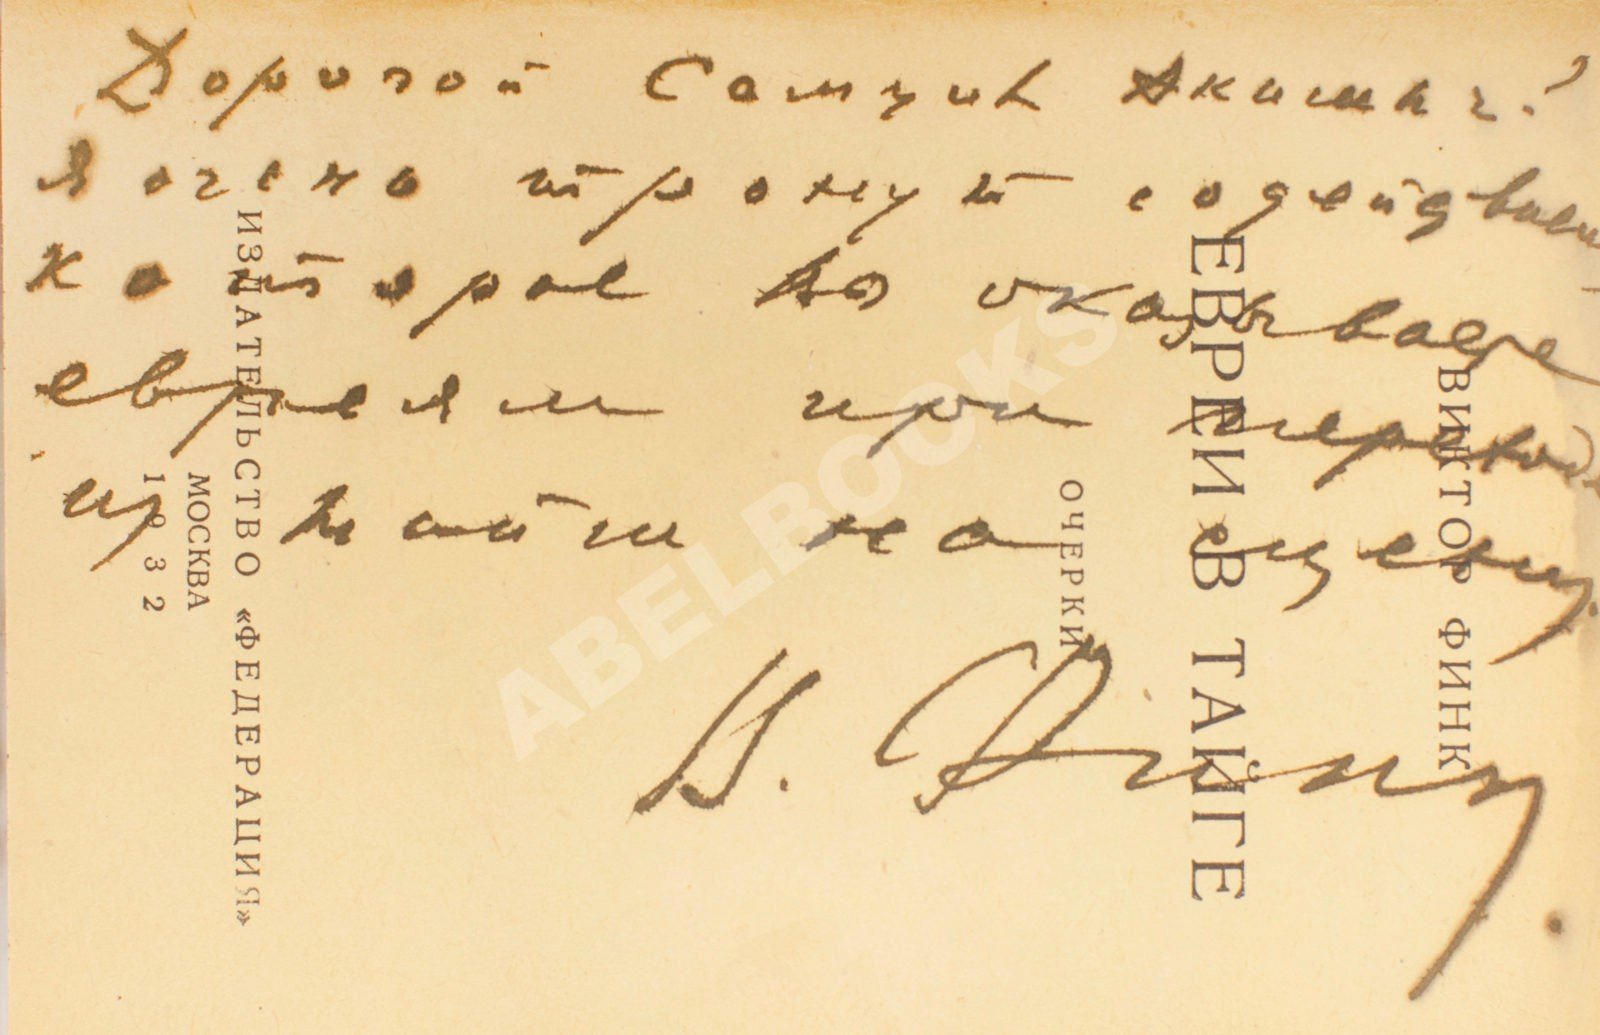 Дорогой Самуил Акимыч!
Я очень тронут содействием
которое Вы оказываете
евреям при переходе
из тайги на сцену.
В. Финк.
ВИКТОР ФИНК
ЕВРЕИ В ТАЙГЕ
ОЧЕРКИ
ИЗДАТЕЛЬСТВО «ФЕДЕРАЦИЯ»
МОСКВА
1932
ABELBOOKS